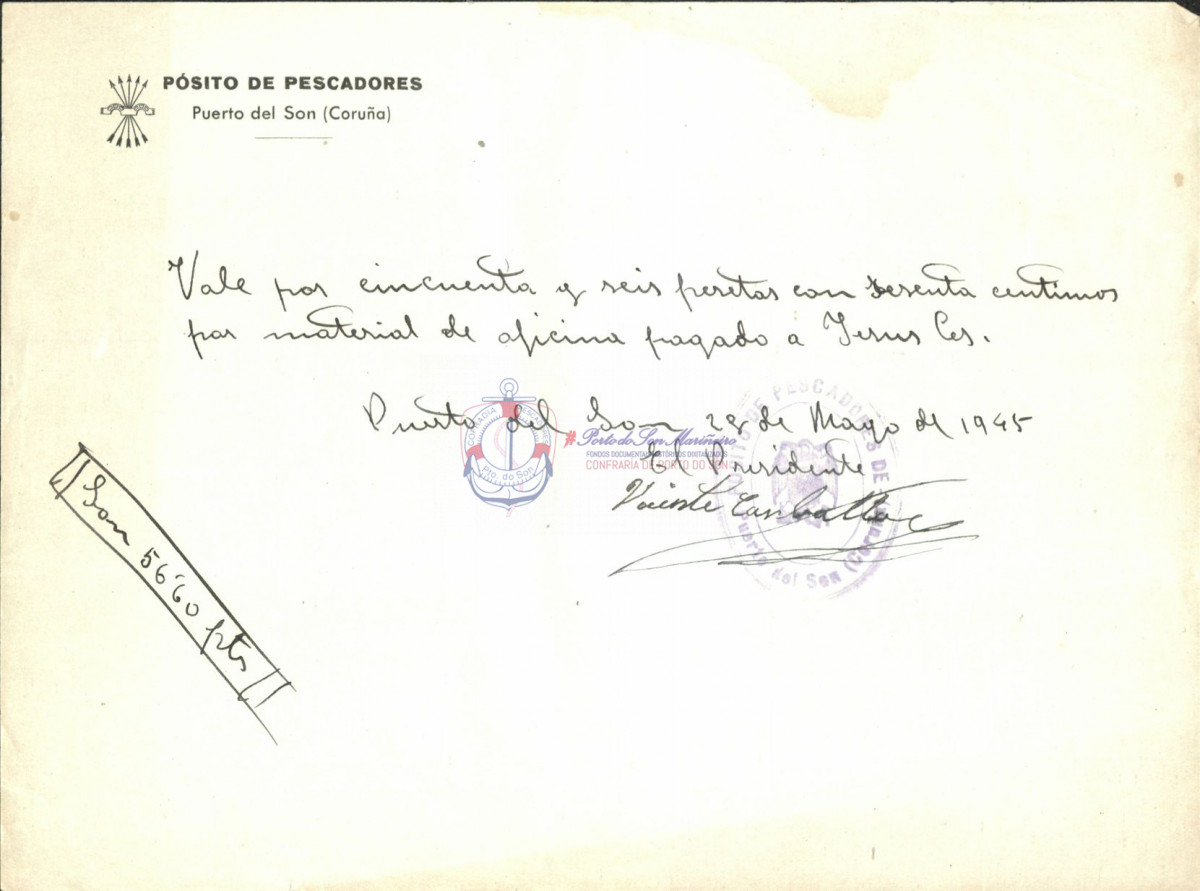 PÓSITO DE PESCADORES
Puerto del Son (Coruña)
Vale por cincuenta y seis pesetas con sesenta centimos
por material de oficina pagado a Jesus Ces.
Puerto del Son 28 de Mayo de 1945
El Presidente
Vicente Carballo
Son 56'60 pts
COFRADIA PESCADORES
Pto. do Son
#PortodoSonMariñeiro
FONDOS DOCUMENTAIS HISTÓRICOS DIXITALIZADOS
CONFRARÍA DE PORTO DO SON
PÓSITO DE PESCADORES DE
Puerto del Son (Coruña)